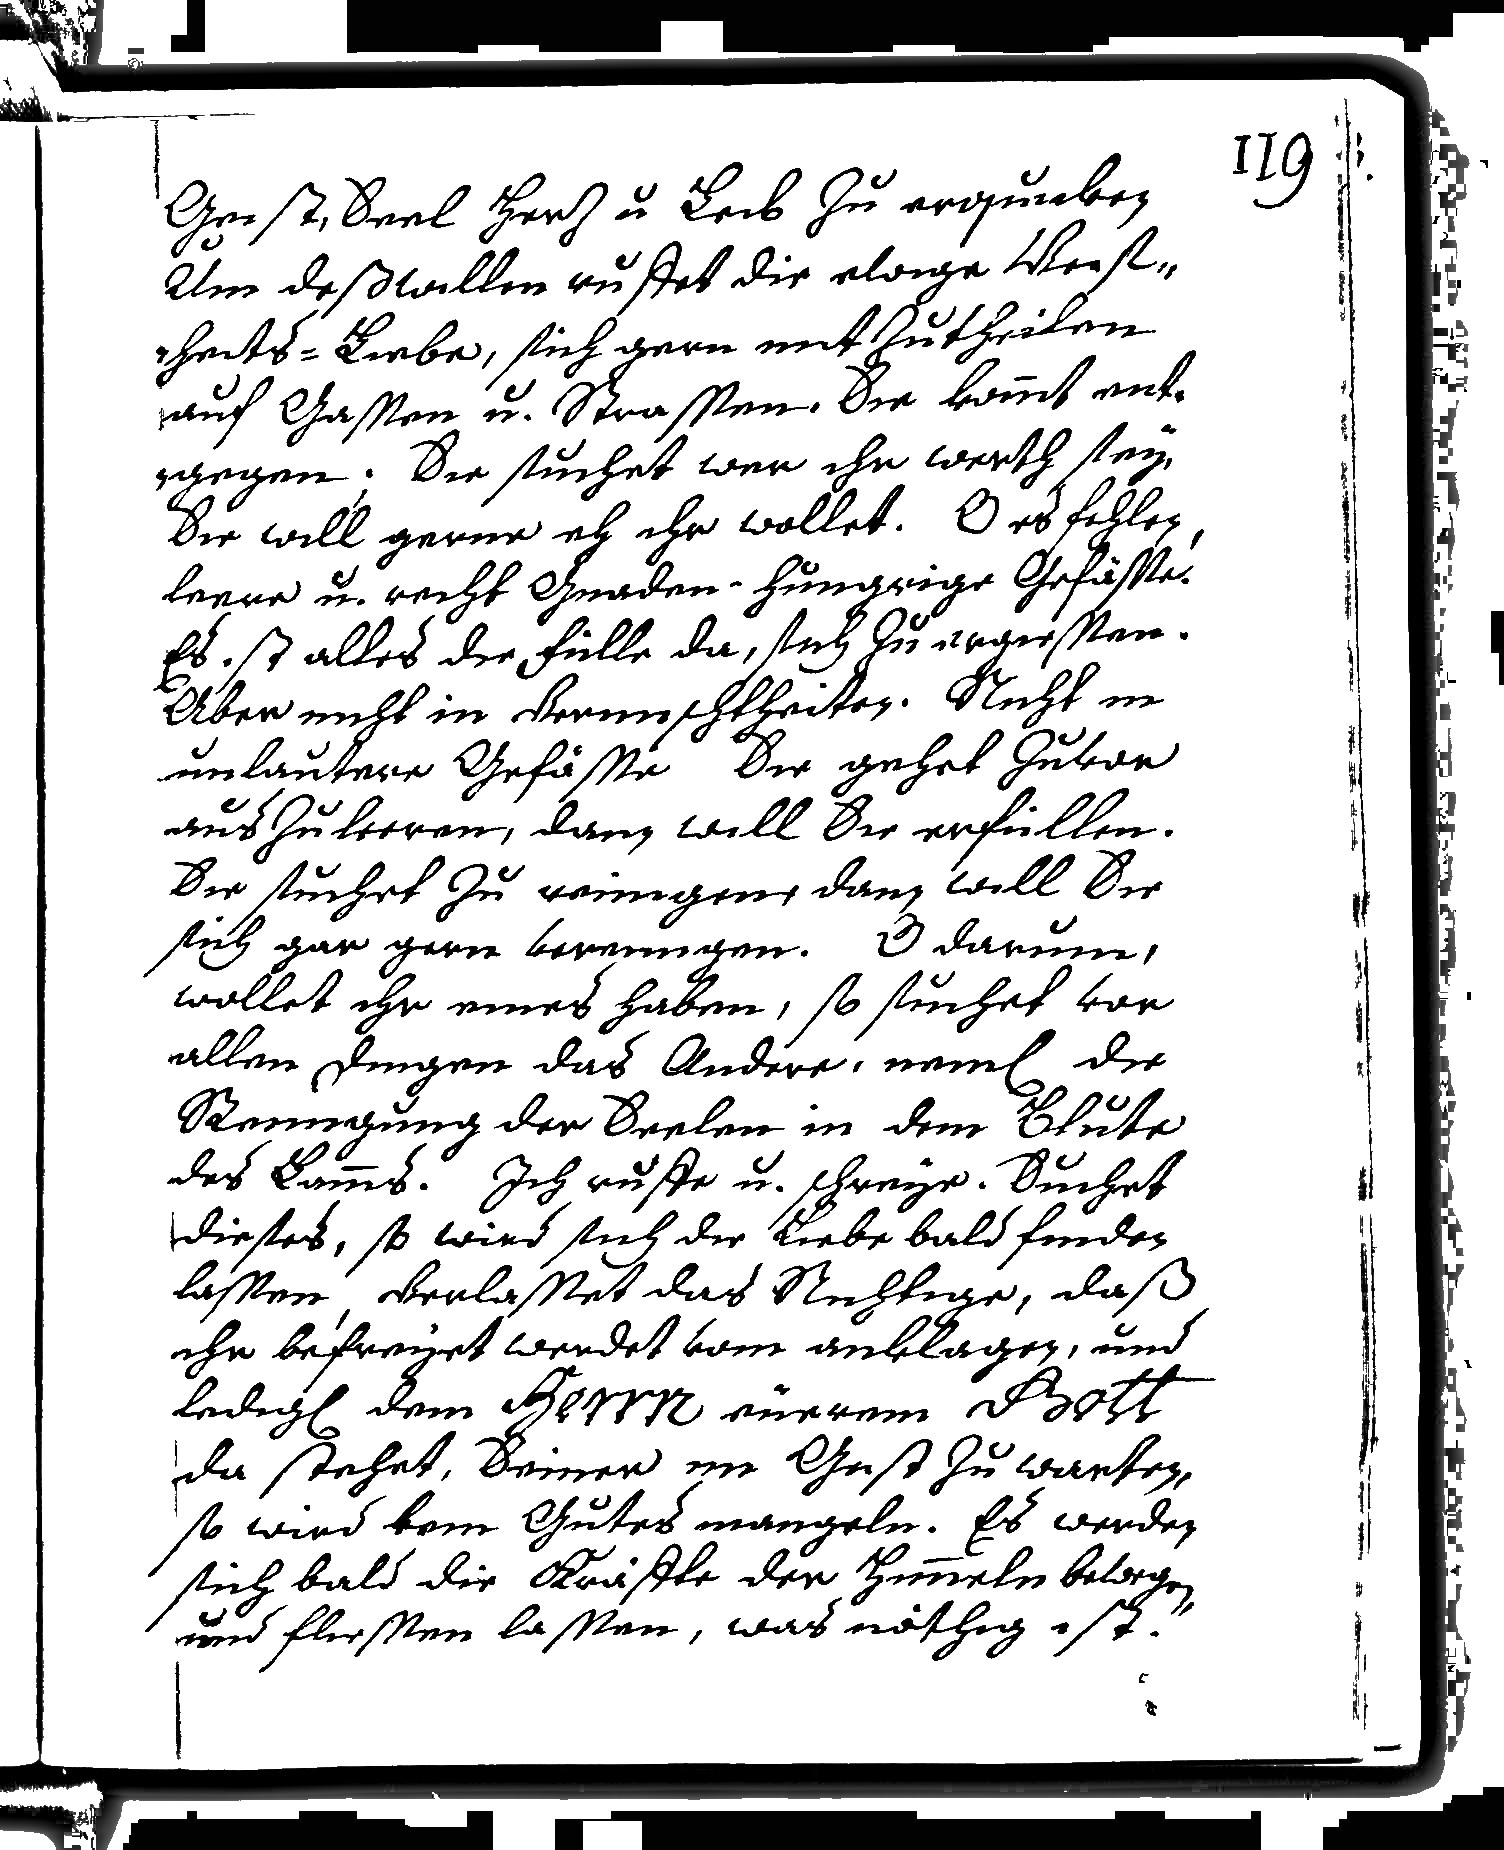 119
Geist, Seel Hertz u Leib zu erquicken
Um deßwillen ruffet die ewige Weis„
„heits=Liebe, sich gern mit zutheilen
auf Gassen u. Strassen. Sie komt ent„
„gegen. Sie suchet wer ihr werth sey,
Sie will gerne eh ihr wollet. O es fehlen,
leere u. recht Gnaden-hungrige Gefässe.
Es ist alles die Fülle da, sich zu ergiessen.
Aber nicht in Vermischtheiten. Nicht in
unlautere Gefässe Sie gehet zuvor
aus zuleeren, dann will Sie erfüllen.
Sie suchet zu reinigen, dann will Sie
sich gar gern vereinigen. O darum,
wollet ihr eines haben, so suchet vor
allen Dingen das Andere, neml die
Reinigung der Seelen in dem Blute
des Lams. Ich ruffe u. schreye. Suchet
dieses, so wird sich die Liebe bald finden
lassen, Verlasset das Nichtige, daß
ihr befreyet werdet vom anklagen, und
ledigl dem Herrn eüerem Gott
da stehet, Seiner im Geist zu warten,
so wird kein Gutes mangeln. Es werden
sich bald die Kräffte der Himeln bewegen,
und fliessen lassen, was nöthig ist.